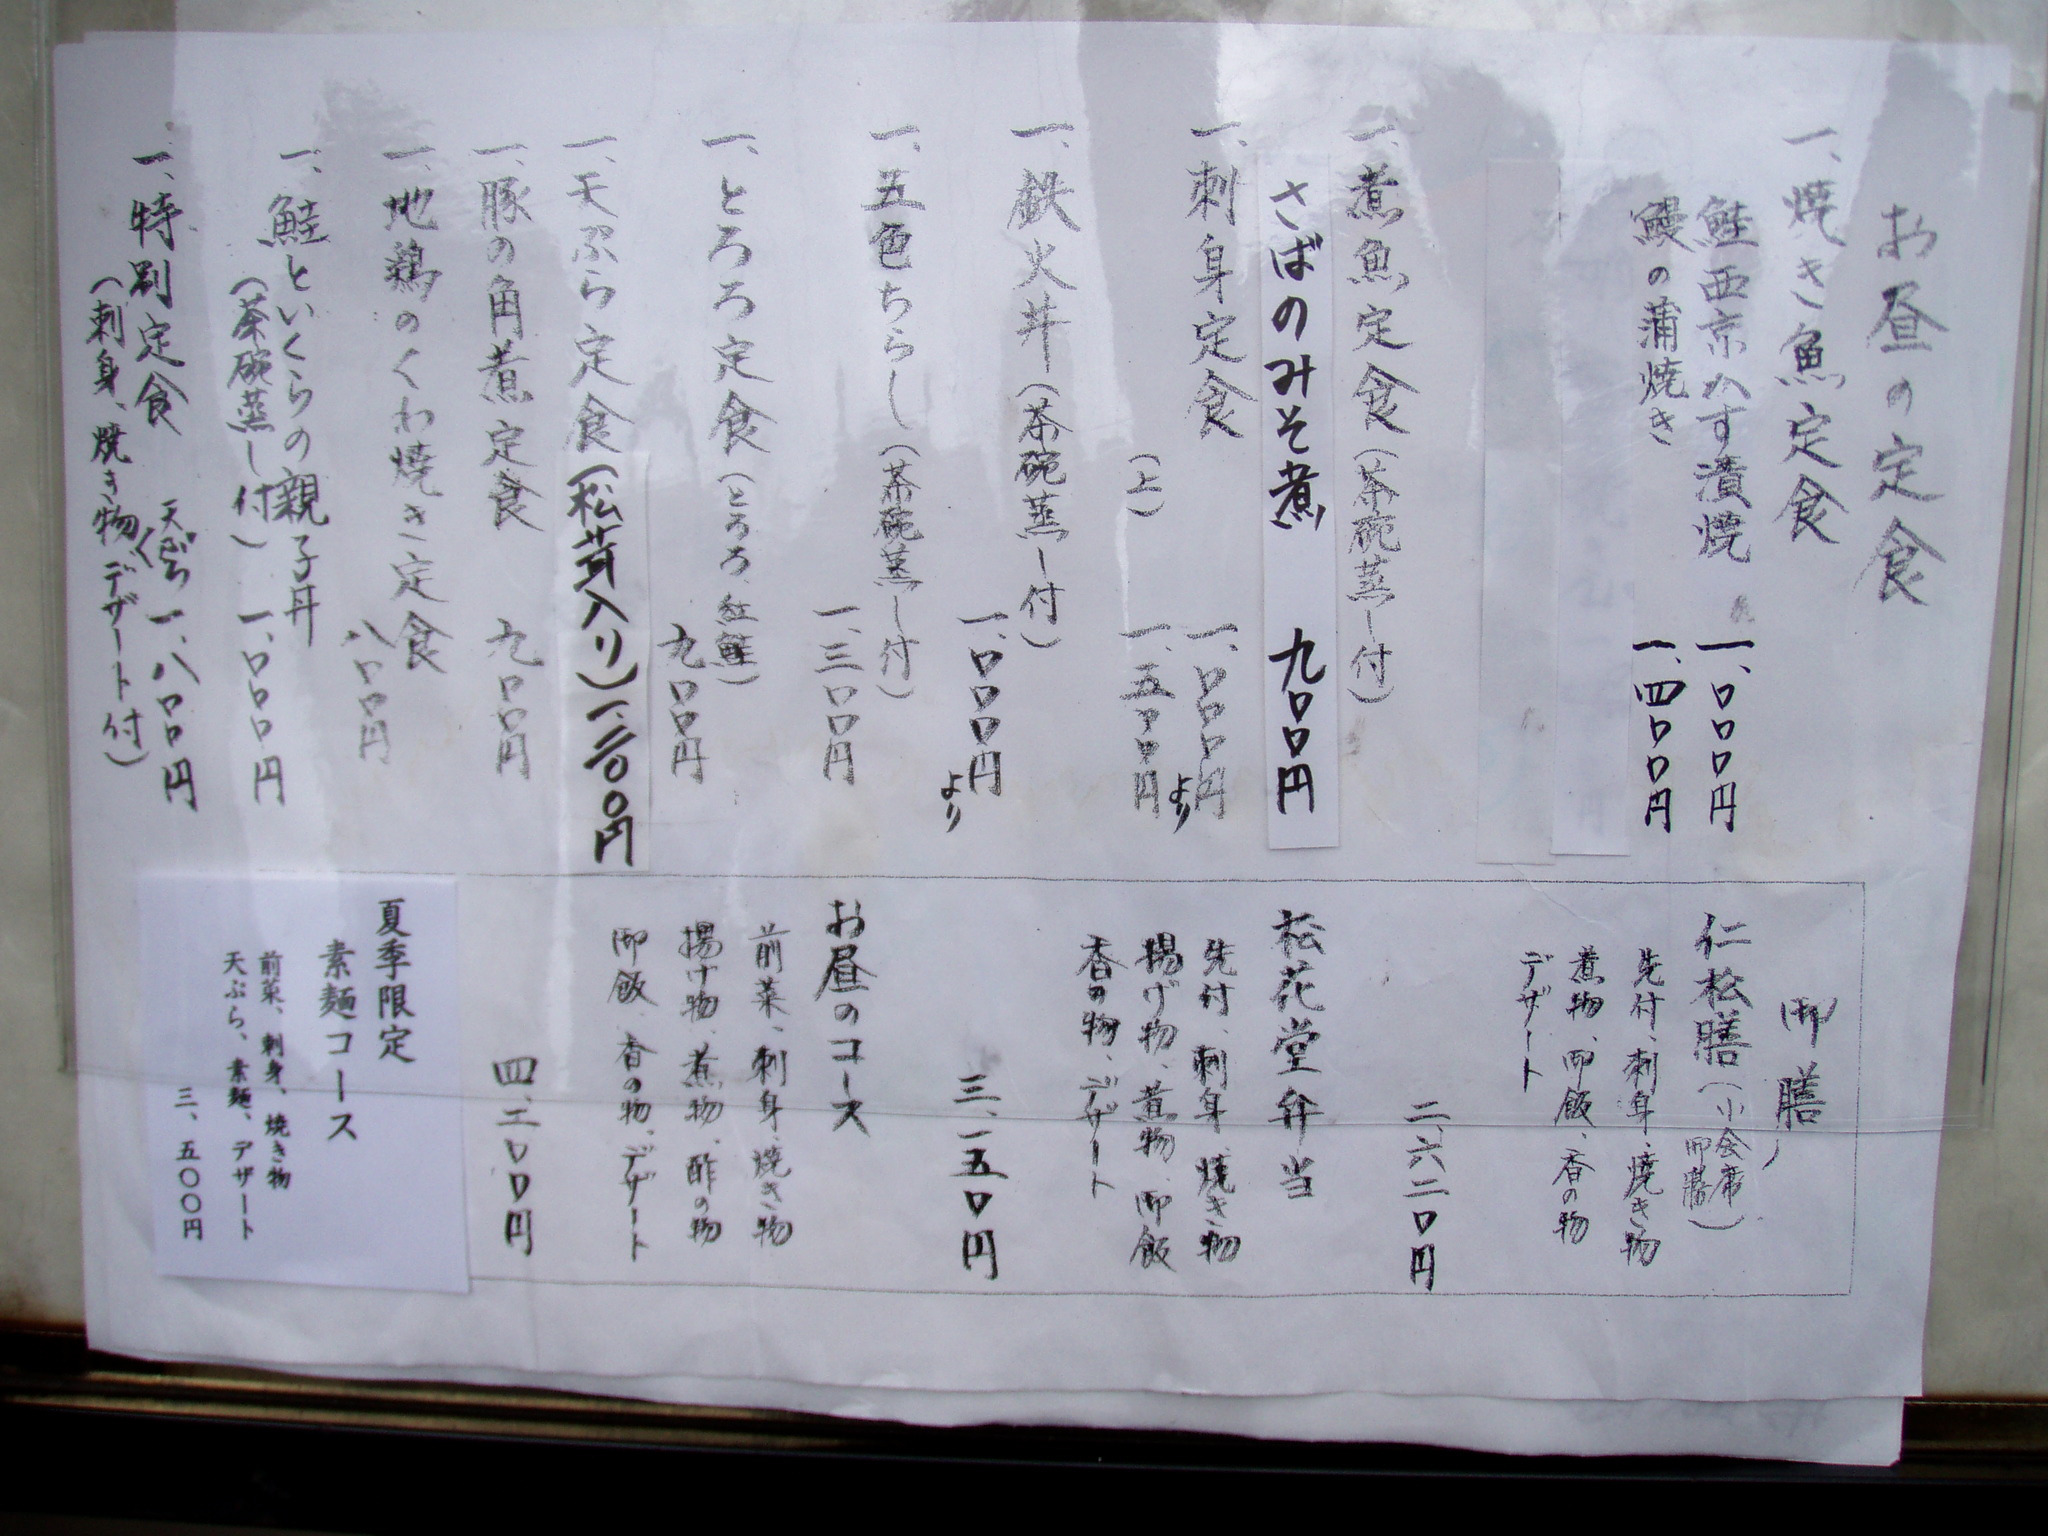 お昼の定食
一、焼き魚定食
鮭西京かす漬焼 一、〇〇〇円
鰻の蒲焼き 一、四〇〇円
一、煮魚定食(茶碗蒸し付)
さばのみそ煮 九〇〇円
一、刺身定食 一、〇〇〇円より
(上) 一、五〇〇円
一、鉄火丼(茶碗蒸し付)
一、〇〇〇円より
一、五色ちらし(茶碗蒸し付)
一、三〇〇円
一、とろろ定食(とろろ、紅鮭)
九〇〇円
一、天ぷら定食(松茸入り)一、二〇〇円
一、豚の角煮定食 九〇〇円
一、地鶏のくわ焼き定食
八〇〇円
一、鮭といくらの親子丼
(茶碗蒸し付) 一、〇〇〇円
一、特別定食 一、八〇〇円
(刺身、焼き物、天ぷら、デザート付)
御膳
仁松膳(小会席御膳)
先付、刺身、焼き物
煮物、御飯、香の物
デザート
二、六二〇円
松花堂弁当
先付、刺身、焼き物
揚げ物、煮物、御飯
香の物、デザート
三、一五〇円
お昼のコース
前菜、刺身、焼き物
揚げ物、煮物、酢の物
御飯、香の物、デザート
四、二〇〇円
夏季限定
素麺コース
前菜、刺身、焼き物
天ぷら、素麺、デザート
三、五〇〇円